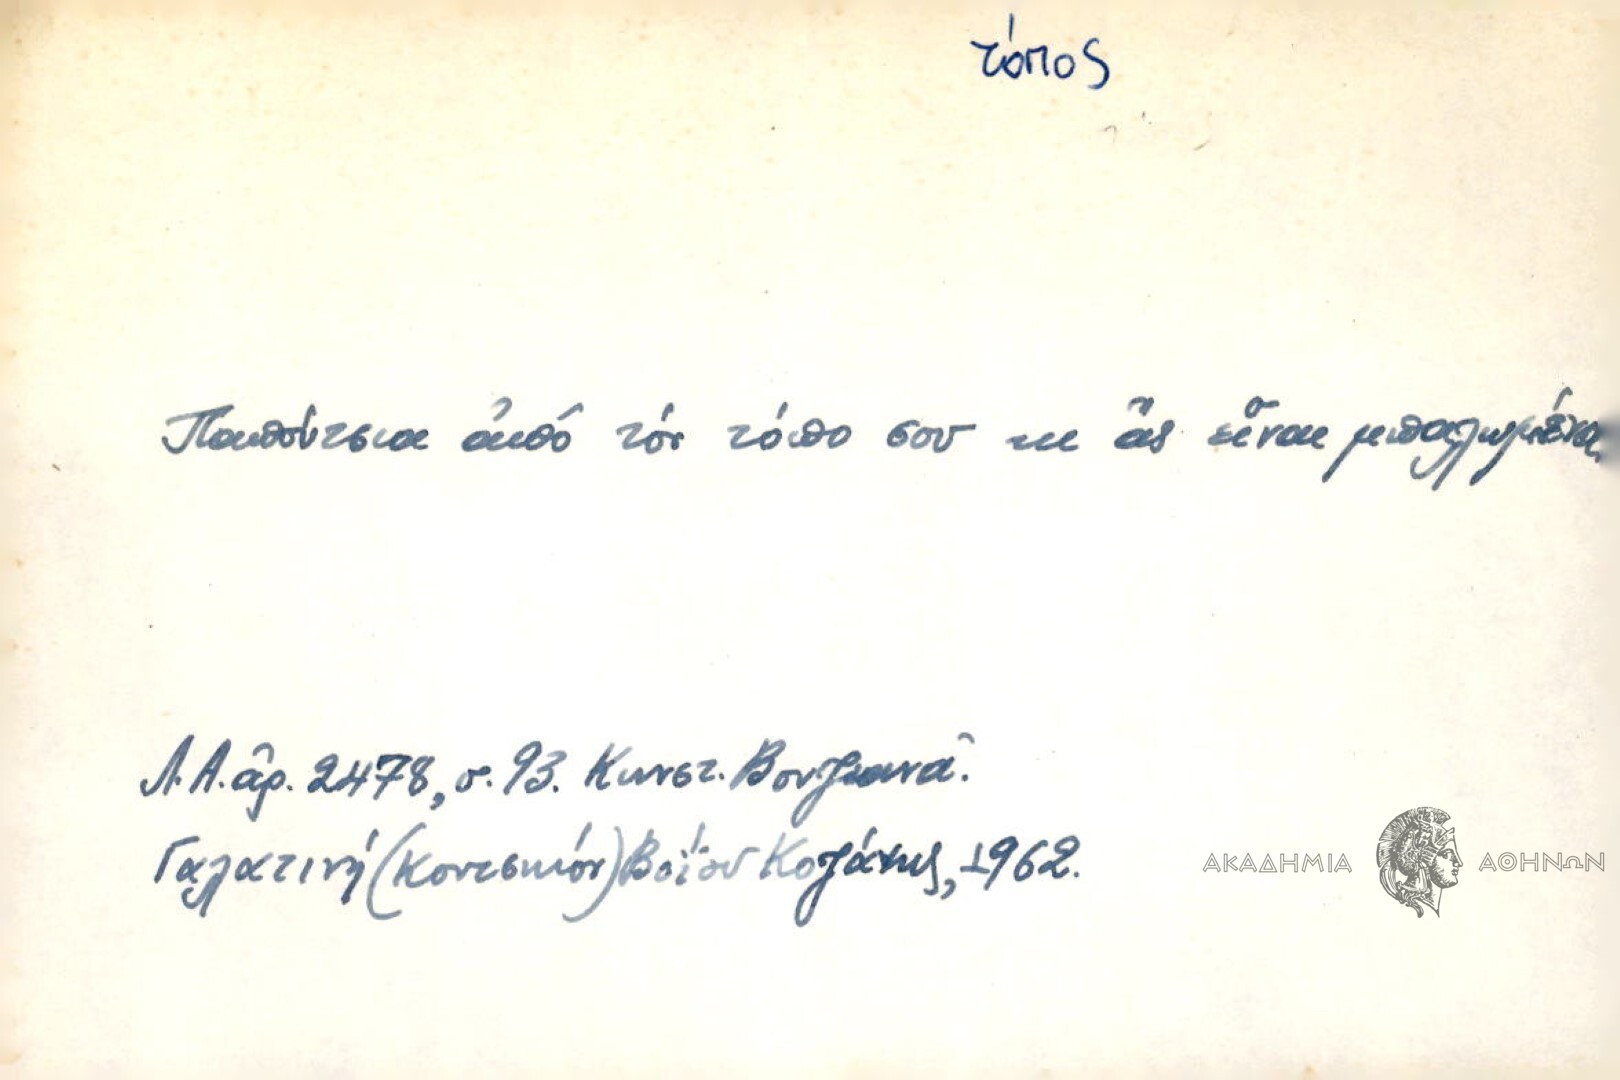 τόπος
Παπούτσια ἀπό τόν τόπο σου κι ἄς εἶναι μπαλωμένα.
Λ.Α. ἀρ. 2478, σ. 93. Κωνστ. Βουζιανᾶ.
Γαλατινή (Κοντσικόν) Βοΐου Κοζάνης, 1962.
ΑΚΑΔΗΜΙΑ ΑΘΗΝΩΝ